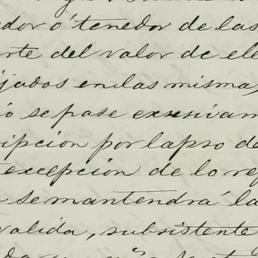 dor ó tenedor de las
rte del valor de el
jados en las misma
ó se pase
ripcion por lapso de
excepcion de lo re
se mantendrá la
valida, subsistente